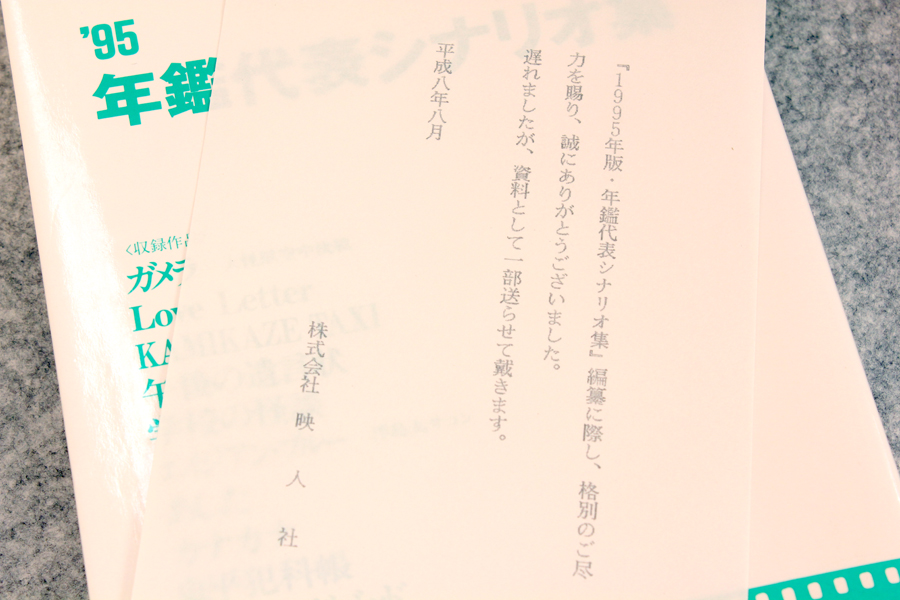 '95
年鑑代表シナリオ集
〈収録作品
ガメラ
Love Letter
KAMIKAZE TAXI
午後の遺言状
『1995年版・年鑑代表シナリオ集』編纂に際し、格別のご尽
力を賜り、誠にありがとうございました。
遅れましたが、資料として一部送らせて戴きます。
平成八年八月
株式会社 映人社